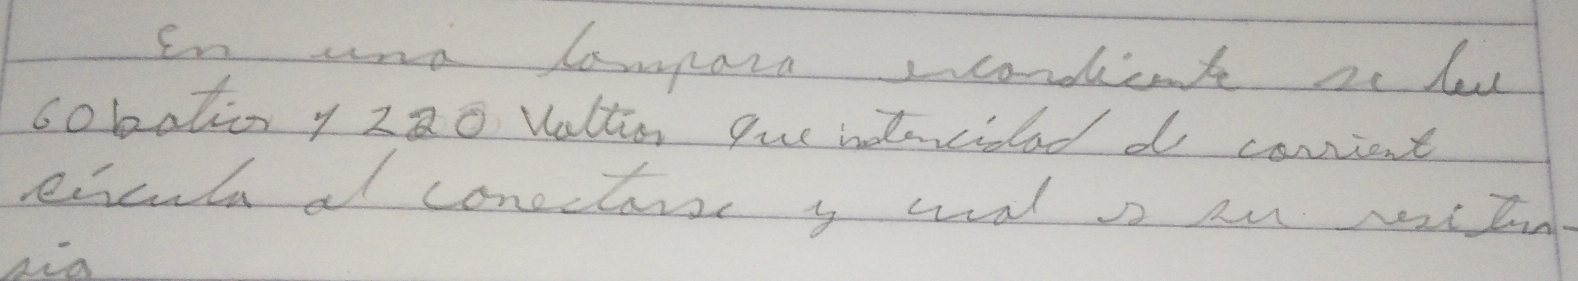 En una lampara encandicente se lee
60batios y 220 Voltios que intencidad de corrient
circula al conectarse y cual es su resisten-
sia